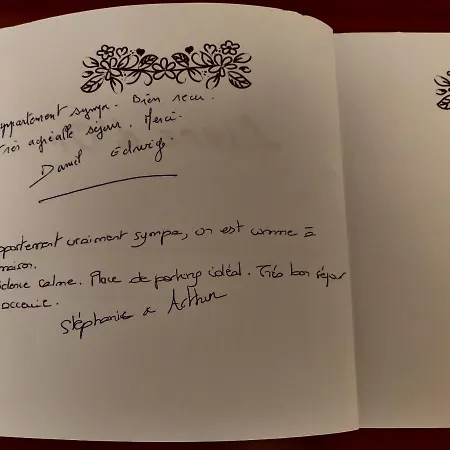 appartement sympa. Bien recu.
très agréable séjour. Merci.
Daniel Edwige.
appartement vraiment sympa, on est comme à
maison.
idence calme. Place de parking idéal. Très bon séjour
occanie.
Stéphanie & Arthur